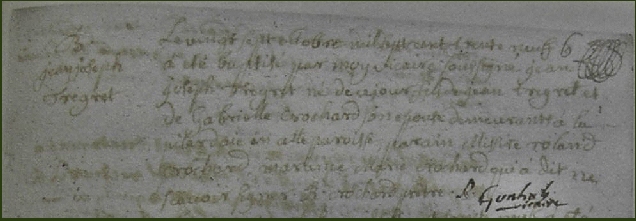 B.
jean joseph
Tregret
Le vingt sept octobre mil sept cent trente neuf
a été baptisé par moy vicaire soussigné jean
joseph Tregret né de ce jour fils de jean Tregret et
de Gabrielle Crochard son epouse demeurants a la
en cette paroisse, parain roland
Crochard, maraine marie Crochard qui a dit ne
scavoir signer R. crochard
vicaire